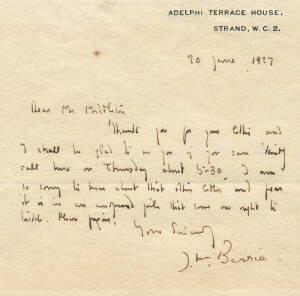 ADELPHI TERRACE HOUSE,
STRAND, W.C. 2.
20 June 1927
Dear Mr Middleton
Thank you for your letter and
I shall be glad to see you if you can
call here on Thursday about 5-30. I am
so sorry to hear about that other letter and fear
it is in an unopened pile that some one ought to
Please forgive!
Yours Sincerely
J. M. Barrie